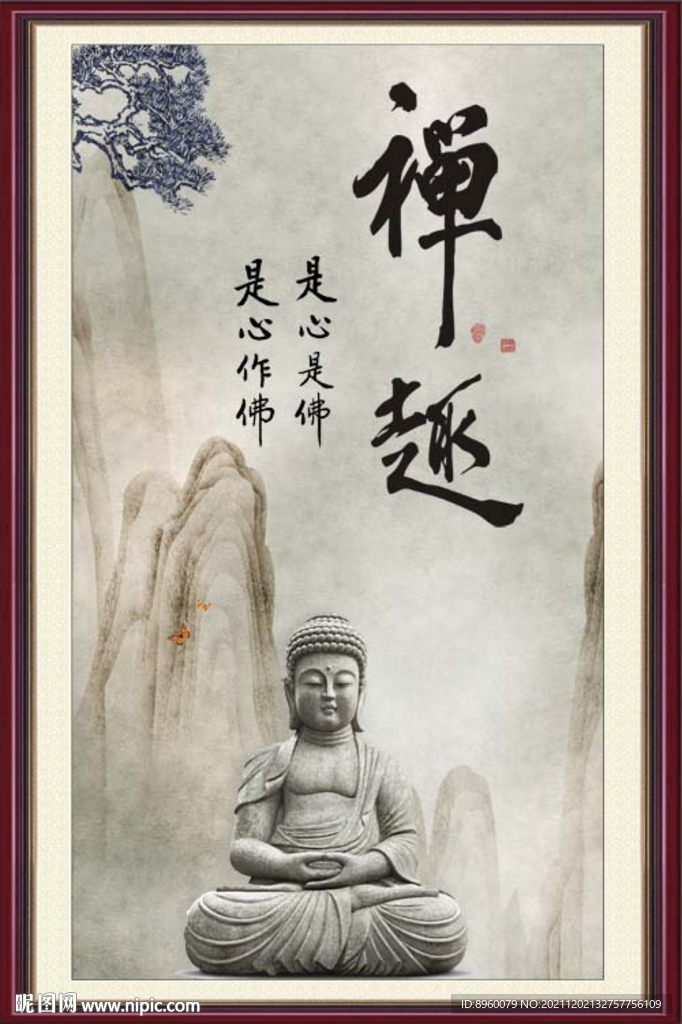 禪趣
是心是佛
是心作佛
昵图网 www.nipic.com
ID:8960079 NO:20211202132757756109